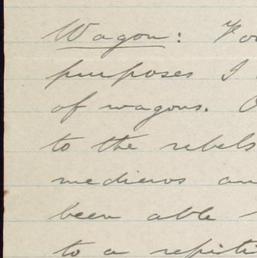 Wagon: Fo
purposes I
of wagons.
to the rebels
medicros an
been able
to a repiti